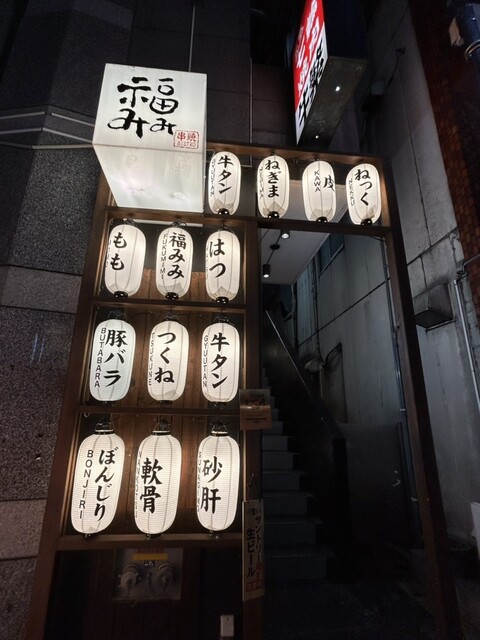 福みみ
串焼
BISTRO
牛タン
GYUUTAN
ねぎま
皮
KAWA
ねっく
NEKKU
もも
福みみ
FUKUMIMI
はつ
豚バラ
BUTABARA
つくね
TSUKUNE
牛タン
GYUUTAN
ぼんじり
BONJIRI
軟骨
砂肝
サントリー
生ビール